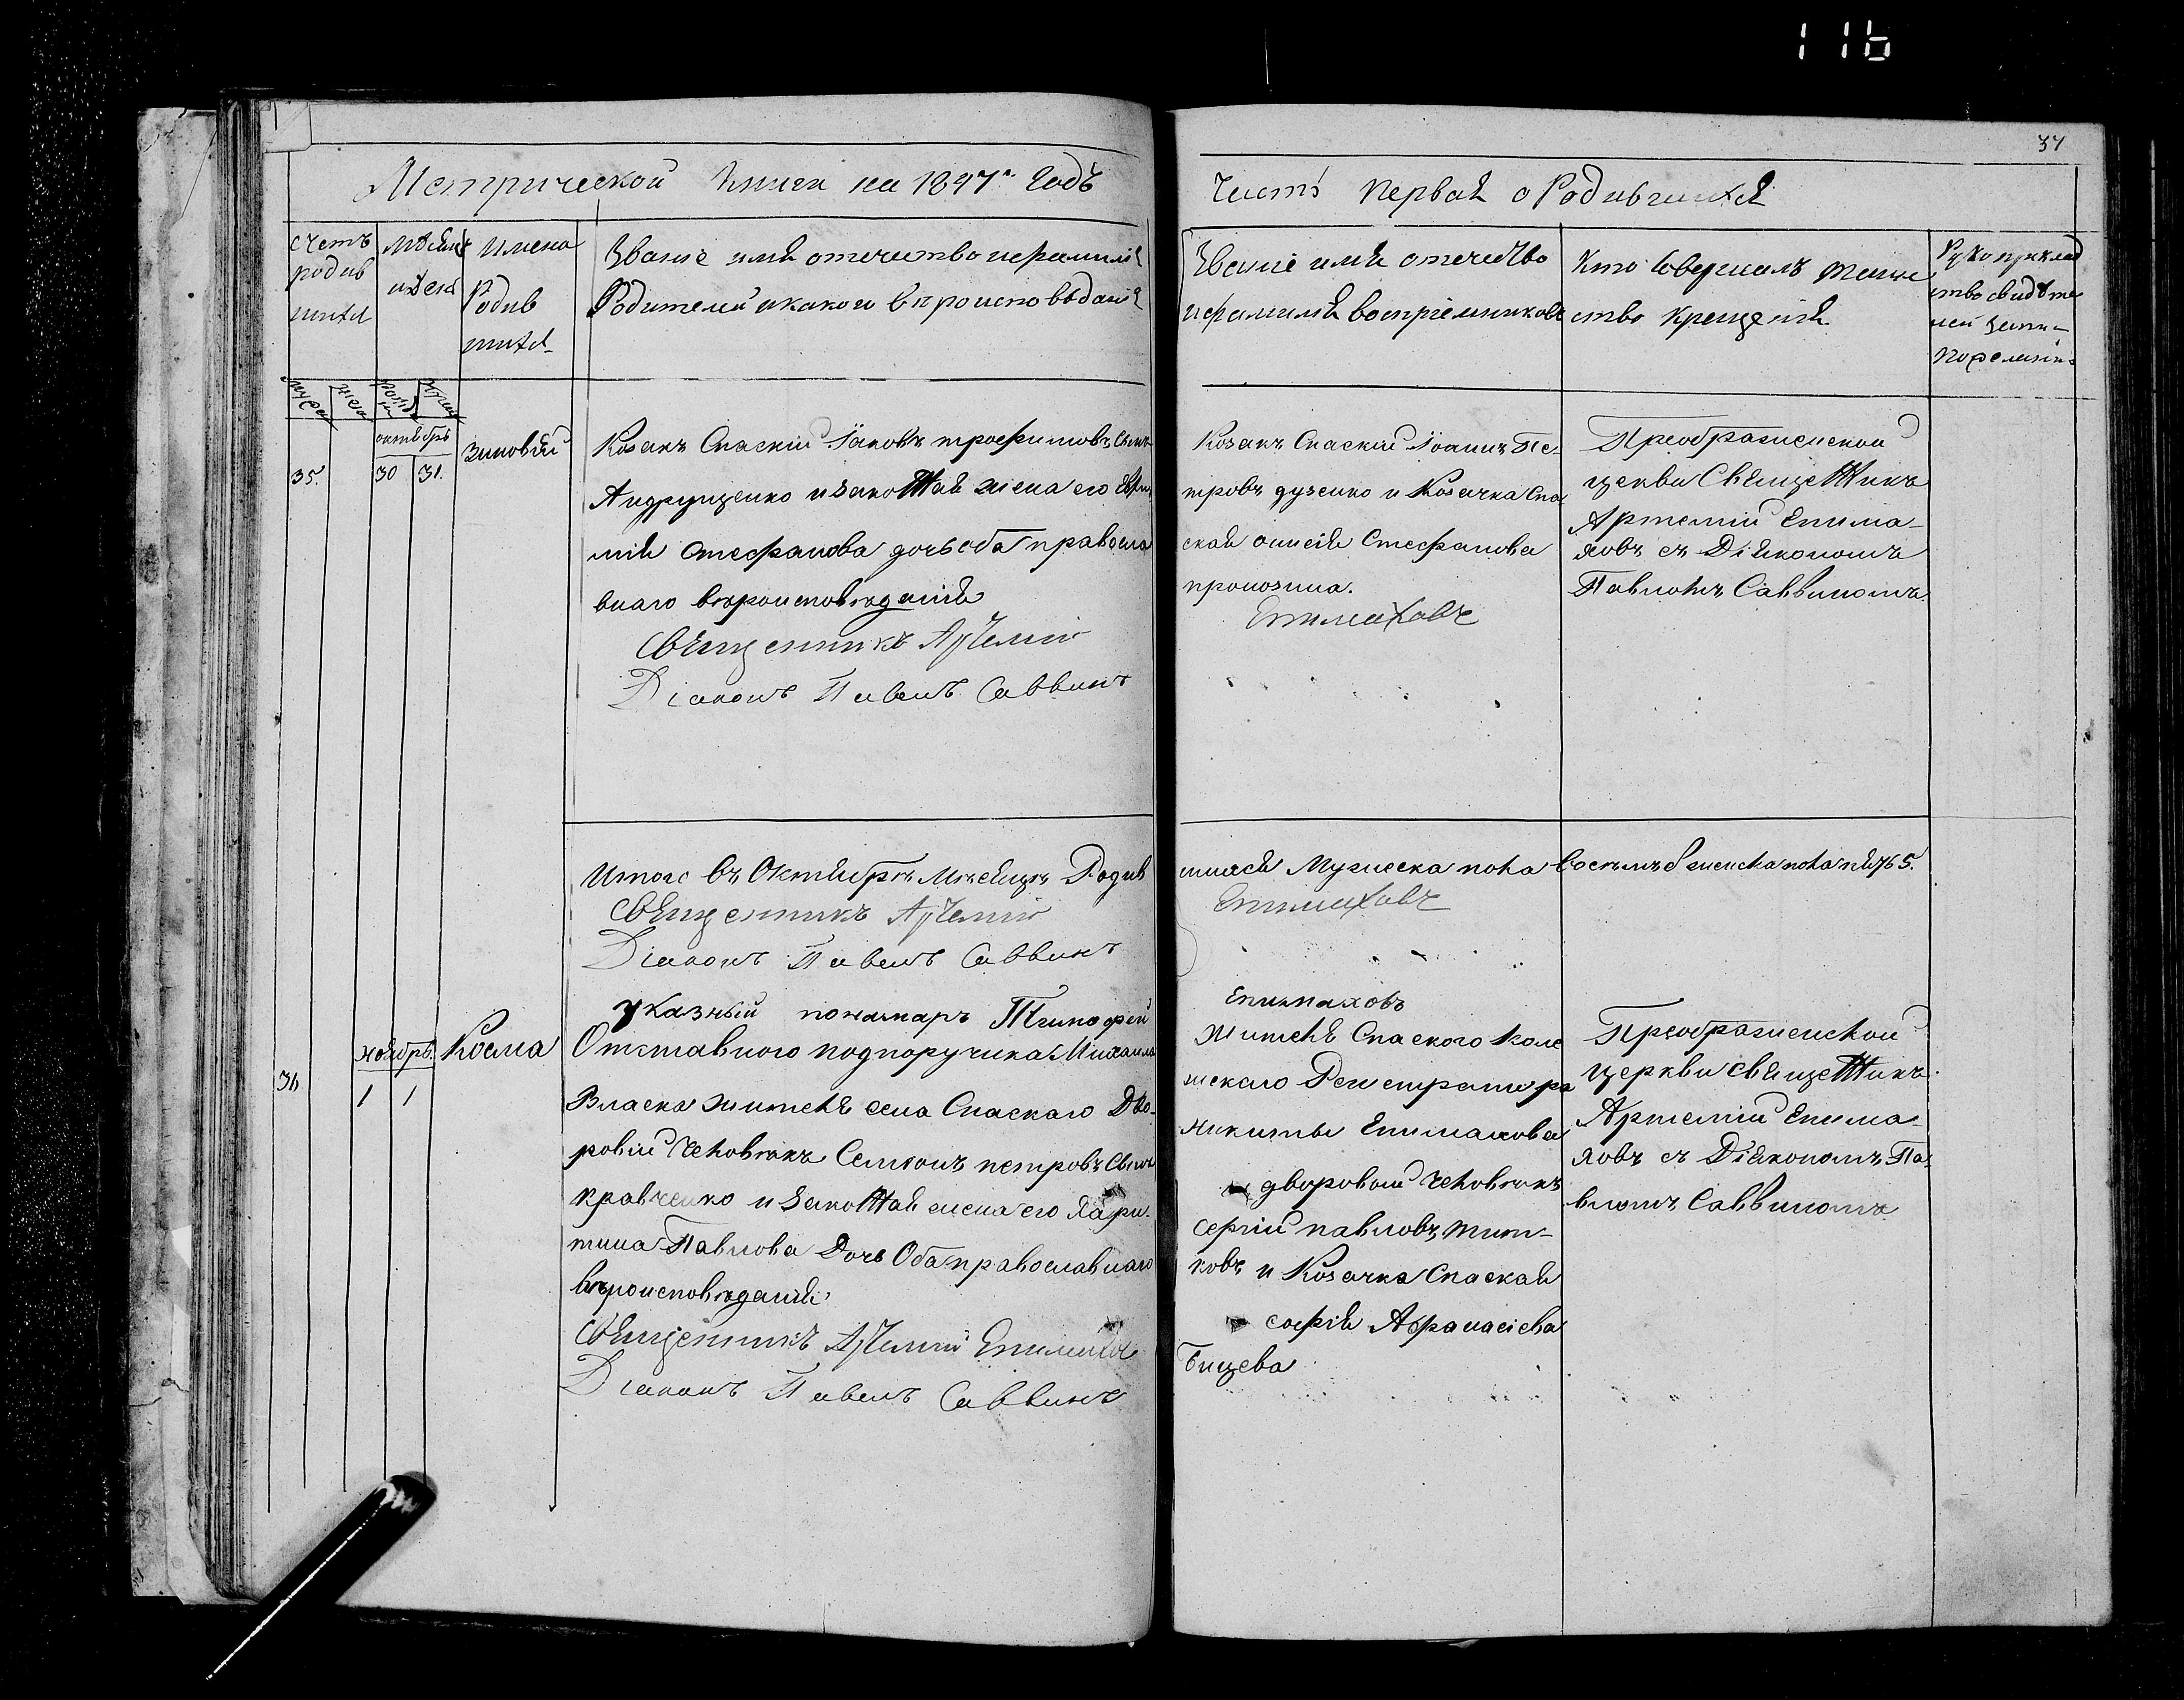 116
37
Метрической книги на 1847й годъ
Часть первая о Родившихся
Счетъ родив шихся
Мѣсяцъ и день
Имена Родив шихся
Званіе имя отечество и фамилія
Родителей и какого вѣроисповѣданія
Званіе имя отечество
и фамилія воспріемниковъ
Кто совершалъ таин
ство крещенія
Рукоприклад
ство свидѣте
лей записи
по желанію
октябрь
35.
30 31.
Зиновій
Козакъ Спаскій Іаковъ трофимовъ сынъ
Андрущенко и законная жена его Евфи
мія стефанова дочь оба правосла
внаго вѣроисповѣданія
Священникъ Артемій
Діаконъ Павелъ Саввинъ
Козакъ Спаскій Іоаннъ Пе-
тровъ дузенко и Козачка Спа
ская Стефанова
Епимаховъ
Преображенской
церкви Священникъ
Артемій Епима-
ховъ съ Діякономъ
Павломъ Саввиномъ.
Итого въ Октябрѣ Мѣсяцѣ Родив
шихся Мужеска пола восемь женска пола 5.
Священникъ Артемій
Епимаховъ
Діаконъ Павелъ Саввинъ
Указный пономарь Тимофей
Епимаховъ
ноябрь.
36
1 1
Косма
Отставного подпоручика Михаила
Власка жителя села Спаскаго Дво-
ровій человѣкъ Семіонъ петровъ сынъ
кравченко и законная жена его Хари-
тина Павлова Дочь Оба православнаго
вѣроисповѣданія
Священникъ Артемій Епимаховъ
Діаконъ Павелъ Саввинъ
Жителя Спаского Коле
жскаго Регистратора
никиты Епимахова
дворовой человѣкъ
сергій павловъ тит-
ковъ и Козачка Спаская
софія Афанасіева
Бицева
Преображенской
церкви священникъ
Артемій Епима-
ховъ съ Діякономъ Па-
вломъ Саввиномъ